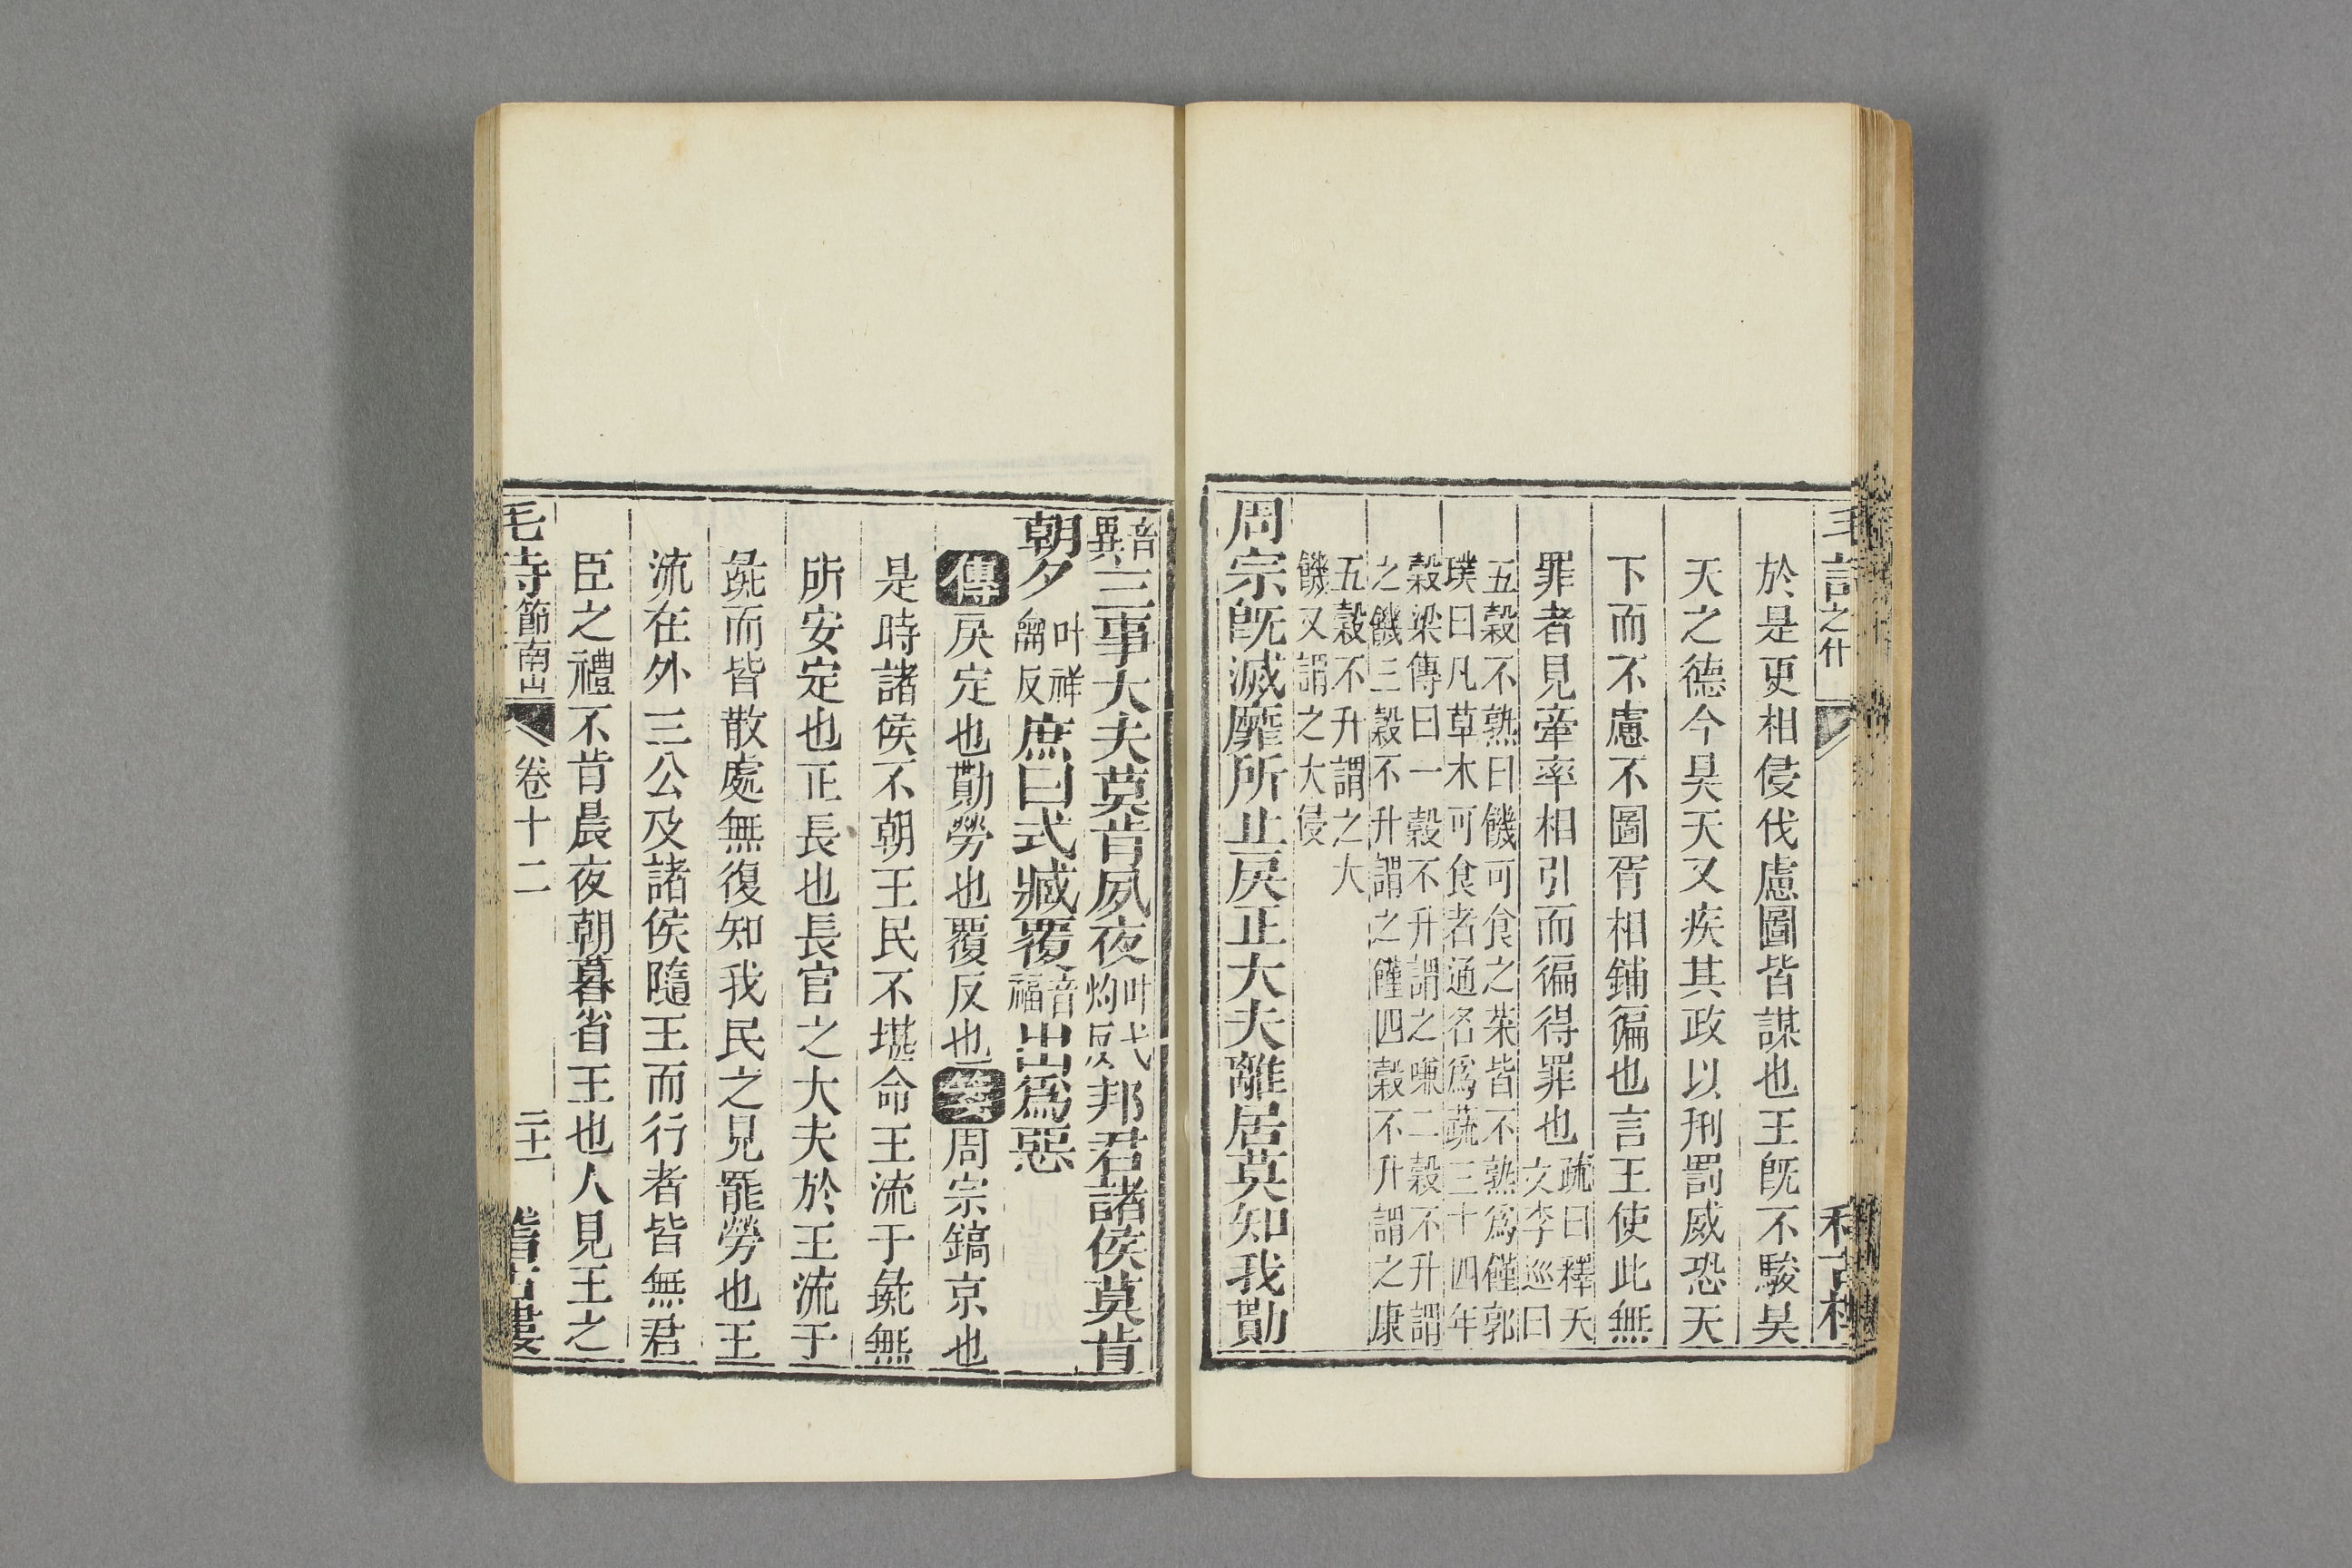 毛詩之什
於是更相侵伐慮圖皆謀也王旣不駿昊
天之德今昊天又疾其政以刑罰威恐天
下而不慮不圖胥相鋪徧也言王使此無
罪者見牽率相引而徧得罪也疏曰釋天
文李巡曰
五穀不熟曰饑可食之菜皆不熟爲饉郭
璞曰凡草木可食者通名爲蔬三十四年
穀梁傳曰一穀不升謂之嗛二穀不升謂
之饑三穀不升謂之饉四穀不升謂之康
五穀不升謂之大
饑又謂之大侵
周宗旣滅靡所止戾正大夫離居莫知我勩
音
異三事大夫莫肯夙夜叶弋
灼反邦君諸侯莫肯
朝夕叶祥
龠反庶曰式臧覆音
福出爲惡
傳戾定也勩勞也覆反也箋周宗鎬京也
是時諸侯不朝王民不堪命王流于彘無
所安定也正長也長官之大夫於王流于
彘而皆散處無復知我民之見罷勞也王
流在外三公及諸侯隨王而行者皆無君
臣之禮不肯晨夜朝暮省王也人見王之
毛詩節南山 卷十二 二十一